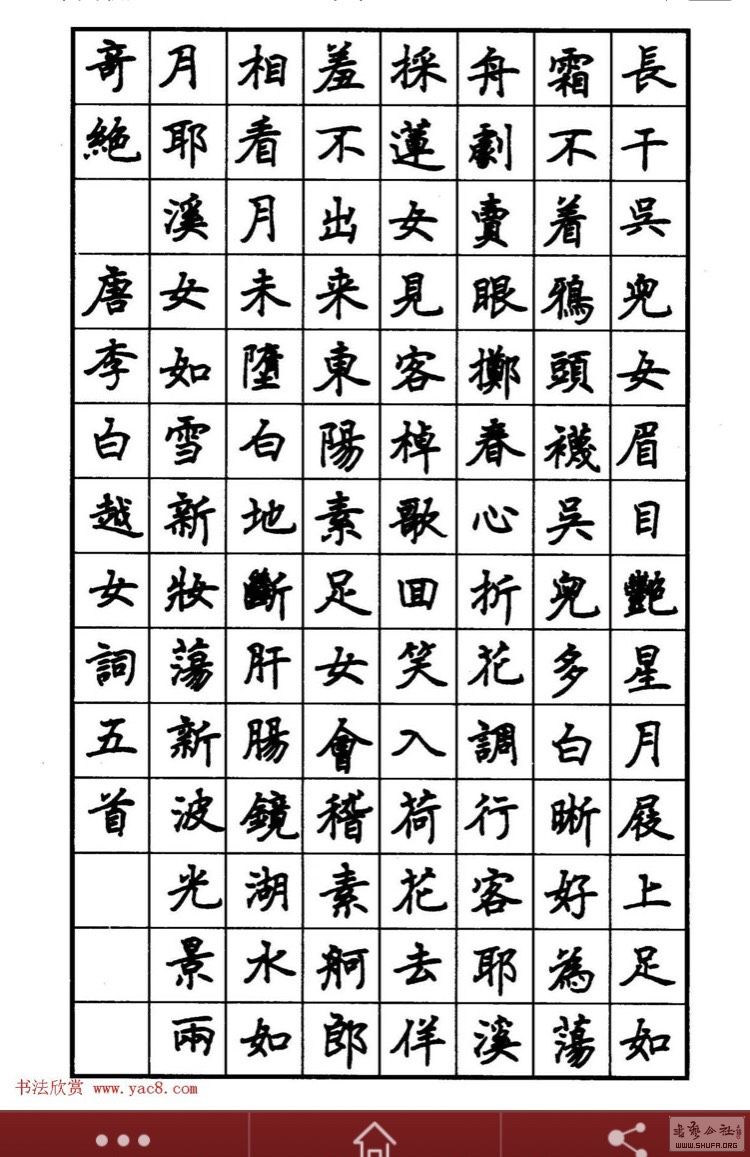 長干吳兒女眉目艷星月屐上足如
霜不着鴉頭襪吳兒多白晰好為蕩
舟劇賣眼擲春心折花調行客耶溪
採蓮女見客棹歌回笑入荷花去佯
羞不出来東陽素足女會稽素舸郎
相看月未墮白地斷肝腸鏡湖水如
月耶溪女如雪新妝蕩新波光景兩
奇絕 唐李白越女詞五首
书法欣赏 www.yac8.com
WWW.SHUFA.ORG